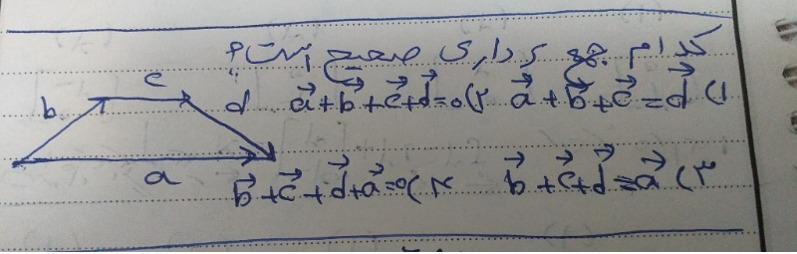 کدام جمع برداری صحیح است؟
۱) a⃗ + b⃗ + c⃗ = d⃗ ۲) a⃗ + b⃗ + c⃗ + d⃗ = 0
۳) b⃗ + c⃗ + d⃗ = a⃗ ۴) b⃗ + c⃗ + d⃗ + a⃗ = 0
b
c
d
a